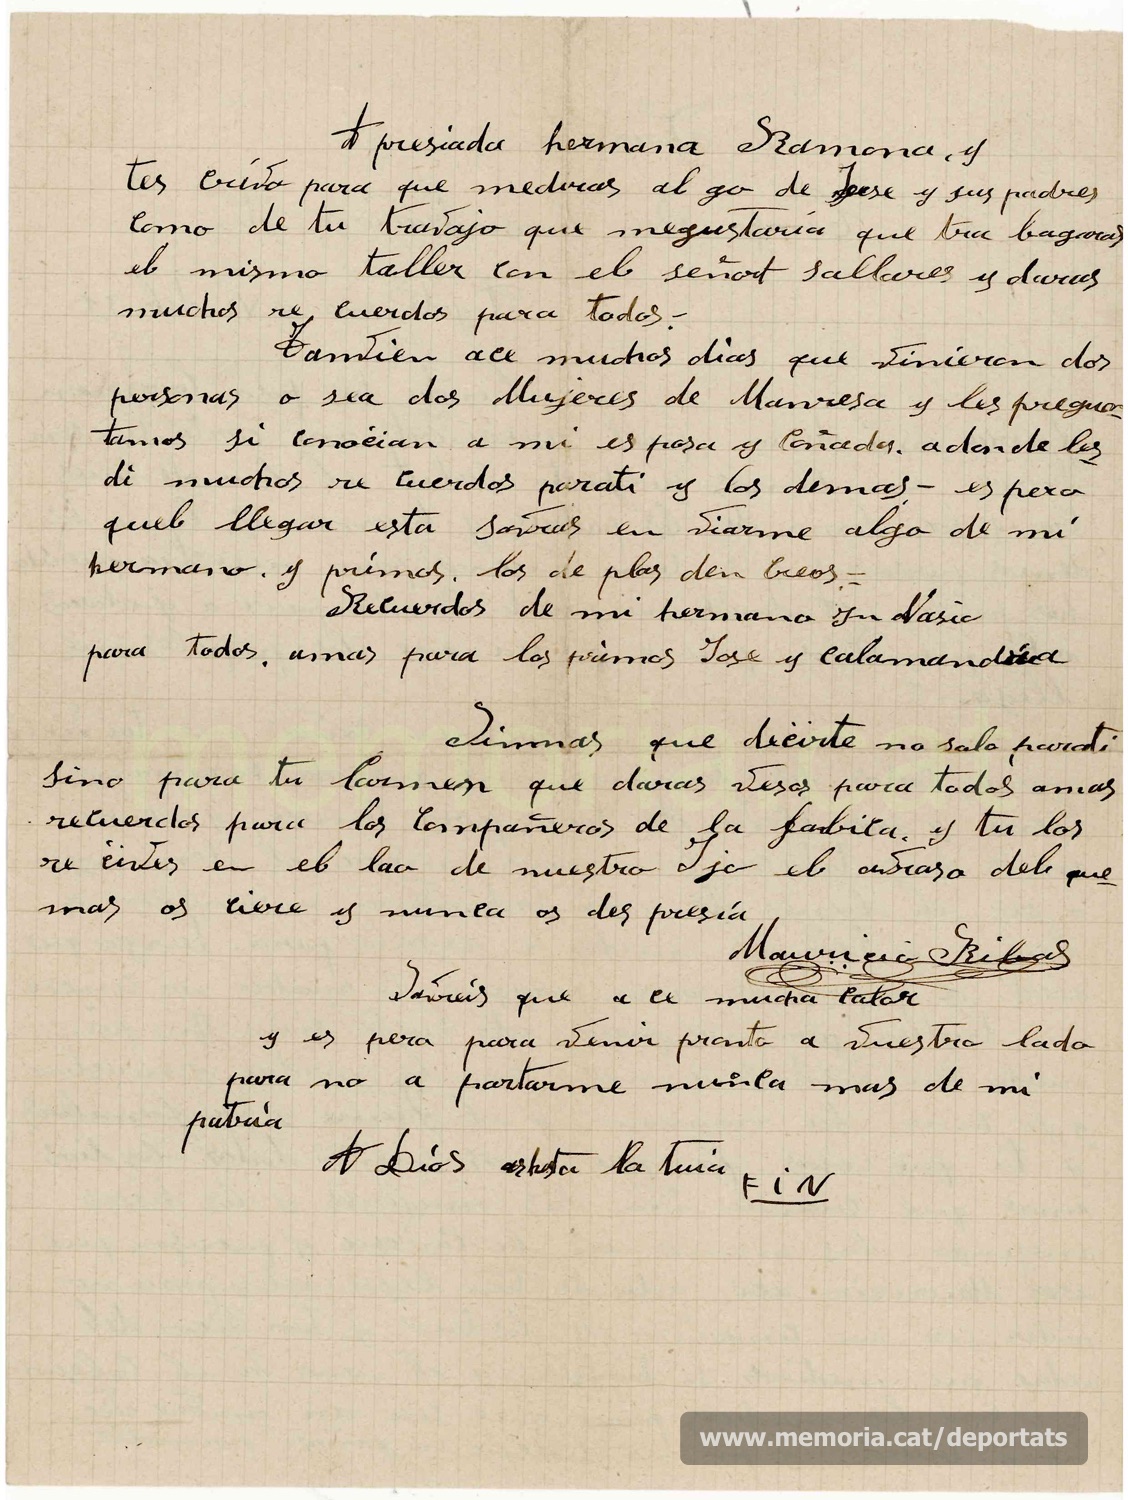 A presiada hermana Ramona, y
tes crivo para que mediras al go de Jose y sus padres
como de tu travajo que megustaria que tra bagaras
el mismo taller con el señort sallares y daras
muchos re cuerdos para todos.-
Tanvien ace muchos dias que vinieron dos
personas o sea dos Mujeres de Manresa y les pregun-
tamos si conocian a mi es posa y coñada. adonde les
di muchos re cuerdos parati y los demas.- es pero
quel llegar esta savras en viarme algo de mi
hermano. y primos. los de plas den creos.=
Recuerdos de mi hermano Ju Nasio
para todos. amas para los primos Jose y calamandria
Sinmas que decirte no solo parati
sino para tu Carmen que daras vesos para todos amas
recuerdos para los compañeros de la fabica. y tu los
re cives en el lao de nuestro Ijo el avraso del que
mas os ciere y nunca os des presia
Mauricio Ribas
Savreis que a ce mucha calor
y es pero para venir pronto a vuestro lado
para no a partarme nunca mas de mi
patria
A Dios asta la tuia FiN
www.memoria.cat/deportats